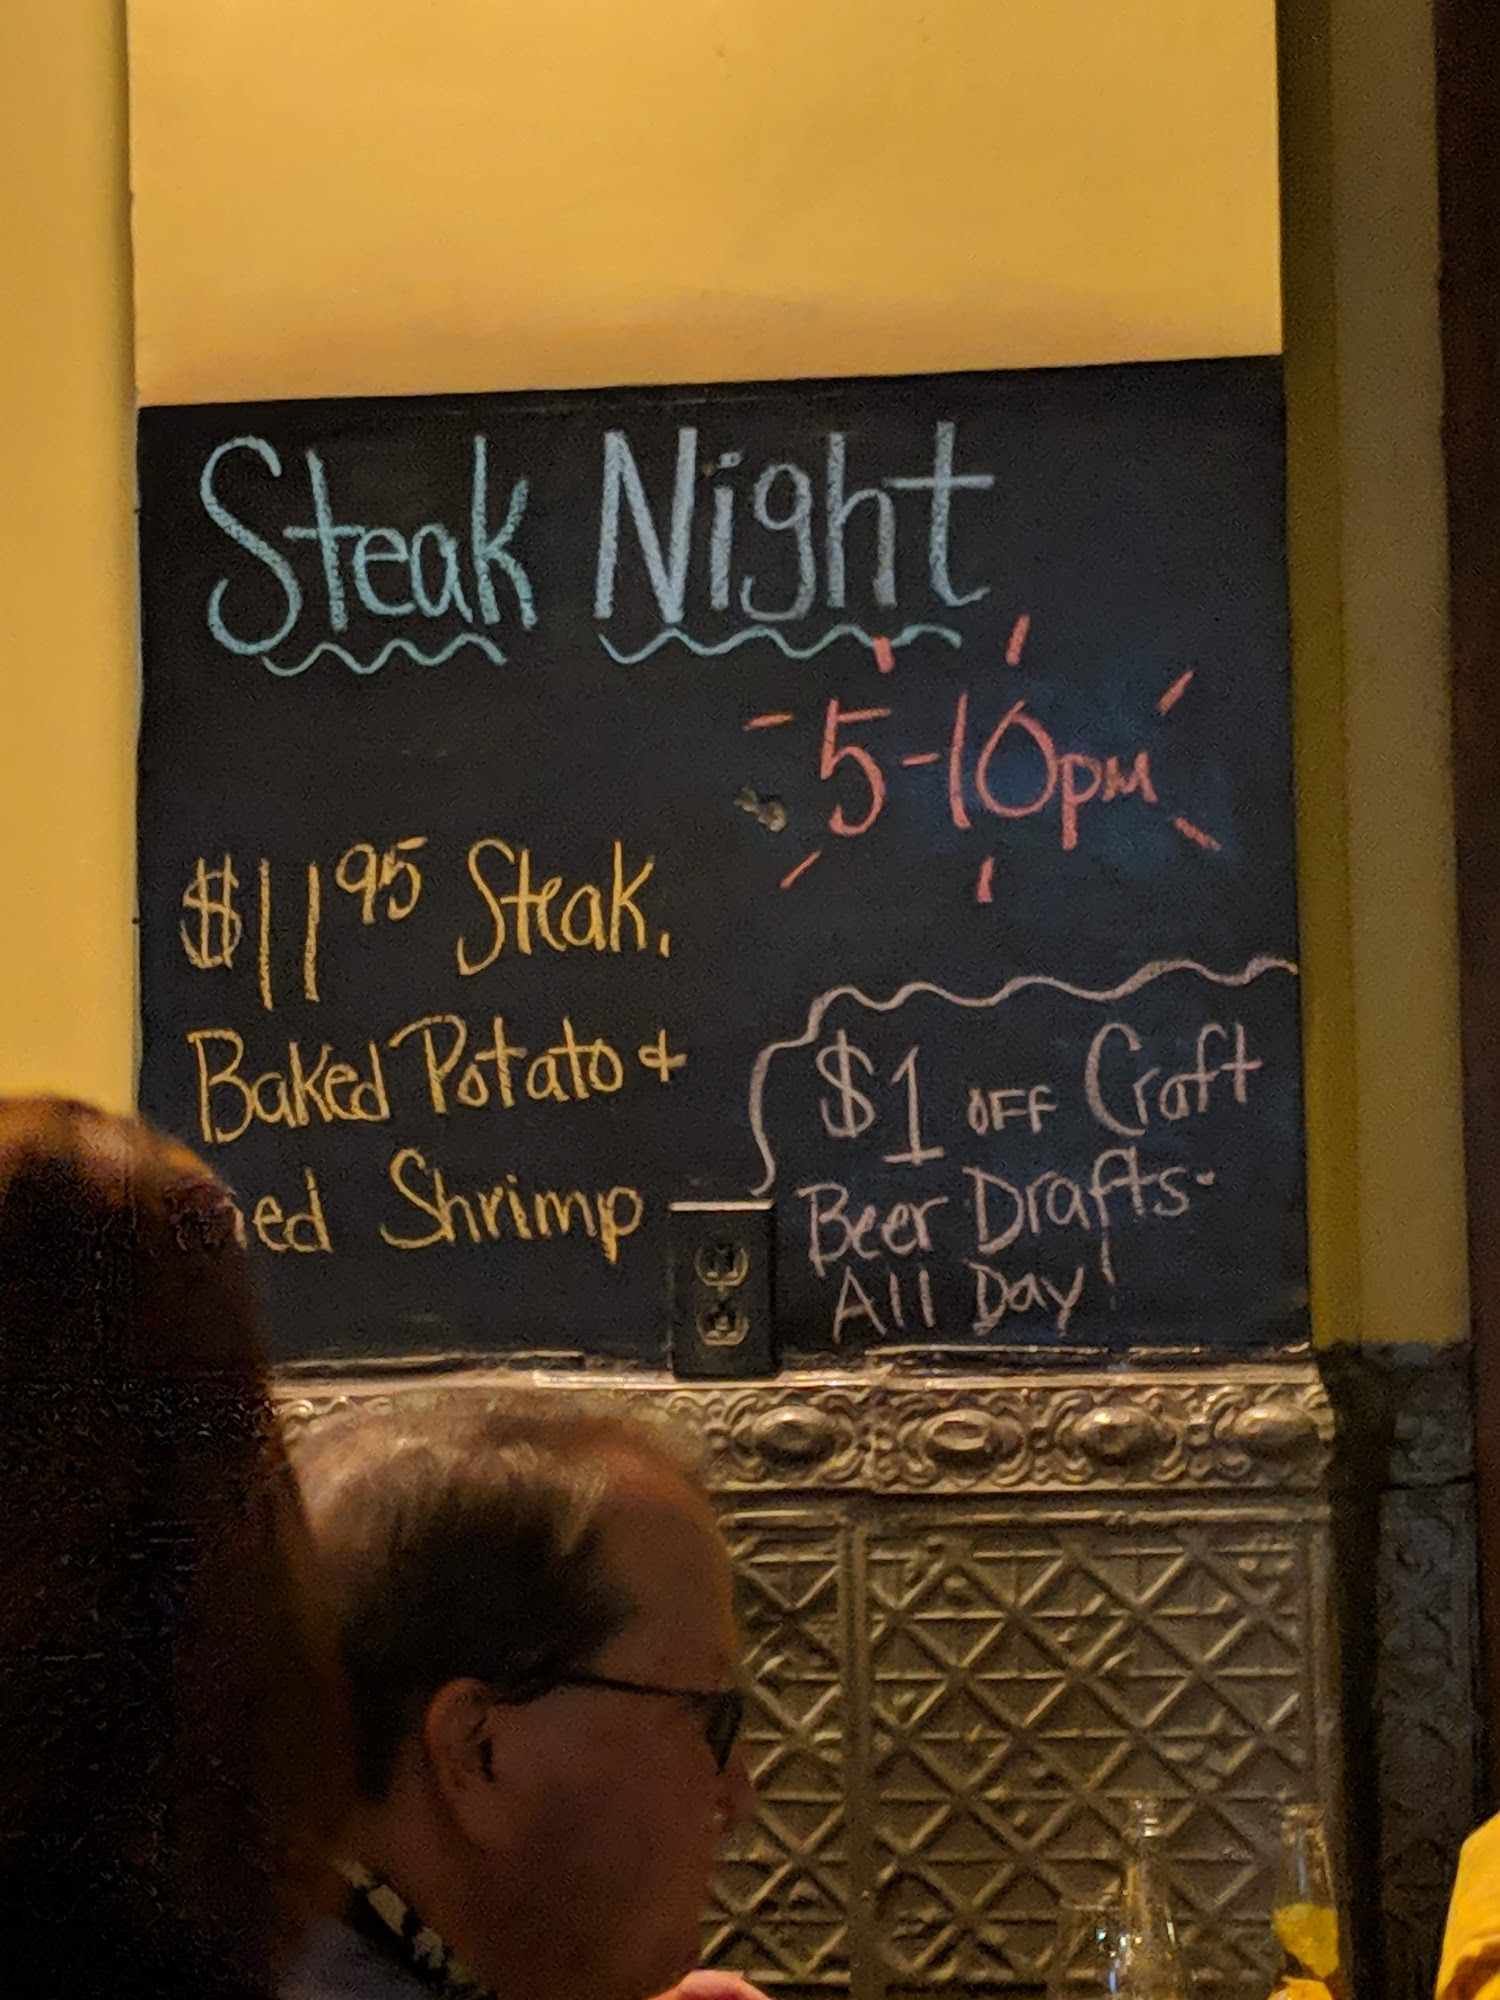 Steak Night
5-10pm
$11 95 Steak,
Baked Potato +
Shrimp
$1 OFF Craft
Beer Drafts-
All Day!